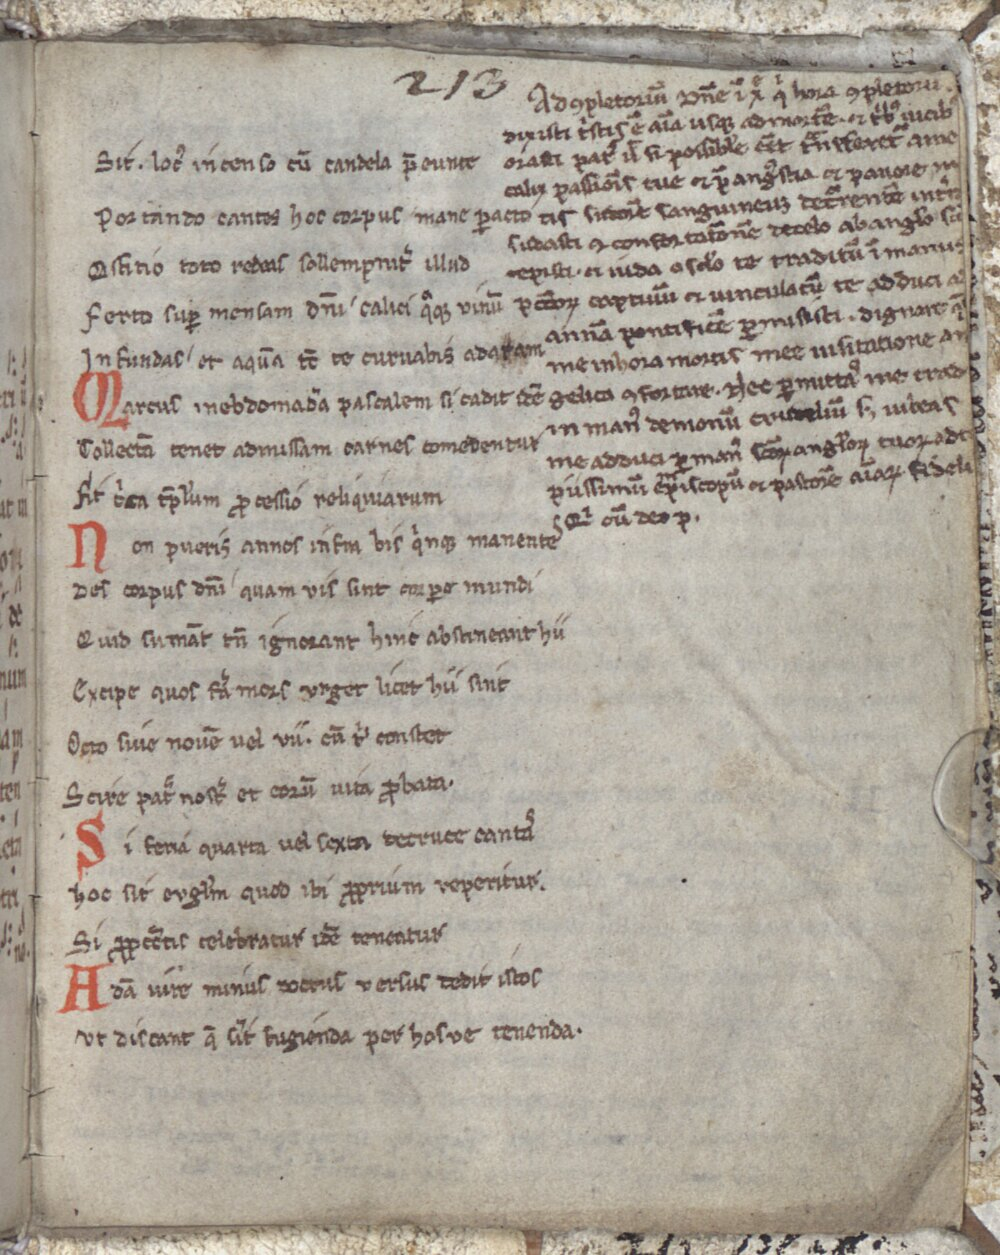 213
Sit. loc⁹ incenso cū candela p̄eunte
Portando cantes hoc corpus mane peracto
Ostitio toto redeas sollempnit̄ illud
Ferto sup mensam dn̄i calici q̄ꝫ vinū
Infundas et aquā tc̄ te curvabis ad aram
Marcus in ebdomada pascalem si cadit idē
Collectā tenet admissam carnes comedentur
Fit circa tp̄lum ꝓcessio reliquiarum
Non pueris annos infra bis q̇nqꝫ manente
Des corpus dn̄i quam vis sint corpe mundi
Quid sumāt tn̄ ignorant hinc abstineant hii
Excipe quos mors vrget licet hii sint
Octo sive novē vel vii. cū constet
Scire pat̄ nost̄ et corū vita ꝓbata.
Si feria quarta vel sexta decruce cantat̄
hoc sit evgl̄m quod ibi ꝓprium reperitur.
Si celebratur idē teneatur
Adā vire minus versus dedit istos
vt discant q̄ sīt fugienda per hos ve tenenda.
Ad ꝯpletoriū Dn̄e ī x̄ q̇ hora ꝯpletorii
dixisti t̄stis ē aīa usqꝫ ad mortē. et
orasti pat̄ si possibile eēt t̄nsferet̄ a me
calix passionis tue et p̄ angustia et pavore
sudore sanguineuꝫ decurrentē
sudasti ꝯ confortationē de celo ab anglo
cepisti. et iuda te traditū ī manus
captivū et vinculatū te adduci
annā pontificē ꝑmisisti. dignare
me in hora mortis mee visitatione an
gelica ꝯfortare. Nec ꝑmittas me
in man⁹ demonū crudeliū iubeas
me adduci ꝑ man⁹ sc̄oꝝ angloꝝ tuoꝝ
piissimū ep̄iscopū et pastorē aīaꝝ fideli
Q̇ cū deo p.